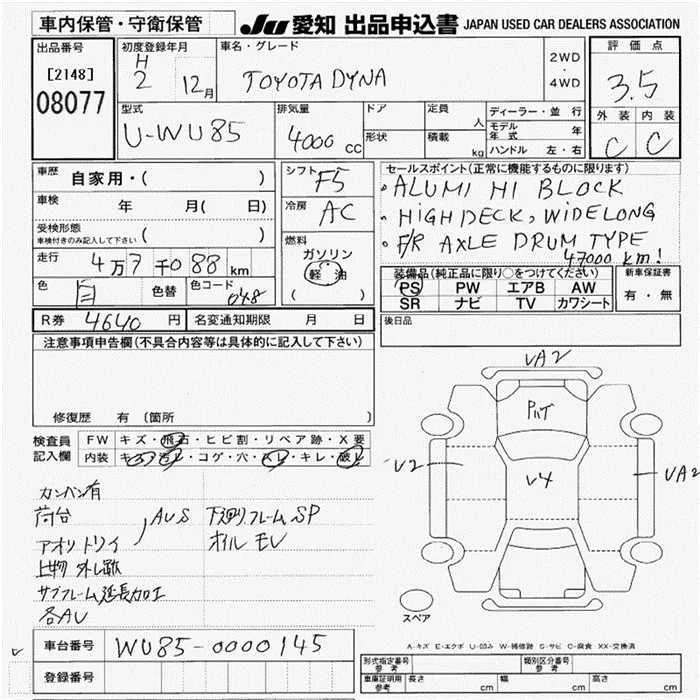 車内保管・守衛保管
JU 愛知 出品申込書 JAPAN USED CAR DEALERS ASSOCIATION
出品番号
[2148]
08077
初度登録年月
H
2 12月
車名・グレード
TOYOTA DYNA
2WD
・
4WD
評価点
3.5
外装 内装
C C
型式
U-WU85
排気量
4000 cc
ドア
定員
人
形状
積載
kg
ディーラー・並行
モデル年式 年
ハンドル 左・右
車歴 自家用・( )
車検 年 月( 日)
受検形態
車検付きのみ記入して下さい ( )
走行 4万7千088 km
色 白 色替 色コード 048
シフト F5
冷房 AC
燃料
ガソリン
軽油
( )
セールスポイント(正常に機能するものに限ります)
・ALUMI HI BLOCK
・HIGH DECK, WIDE LONG
・F/R AXLE DRUM TYPE
47000 km!
装備品(純正品に限り○をつけてください)
PS PW エアB AW
SR ナビ TV カワシート
新車保証書
有・無
R券 4640円 名変通知期限 月 日
後日品
注意事項申告欄(不具合内容等は具体的に記入して下さい)
修復歴 有 〔箇所 〕
検査員
記入欄
FW キズ・飛石・ヒビ割・リペア跡・X要
内装 キズ・汚レ・コゲ・穴・スレ・キレ・破レ
カンバン有
荷台
アオリ トリイ
AUS
下廻り.フレーム SP
オイル EU
上物 外し歴
サブフレーム延長加工
各AU
VA2
V2
V4
VA2
スペア
A-キズ E-エクボ U-凹み W-補修跡 S-サビ C-腐食 XX-交換済
車台番号 WU85-0000145
登録番号
形式指定番号
参考
類別区分番号
参考
車庫証明用
参考
長さ cm 幅 cm 高さ cm